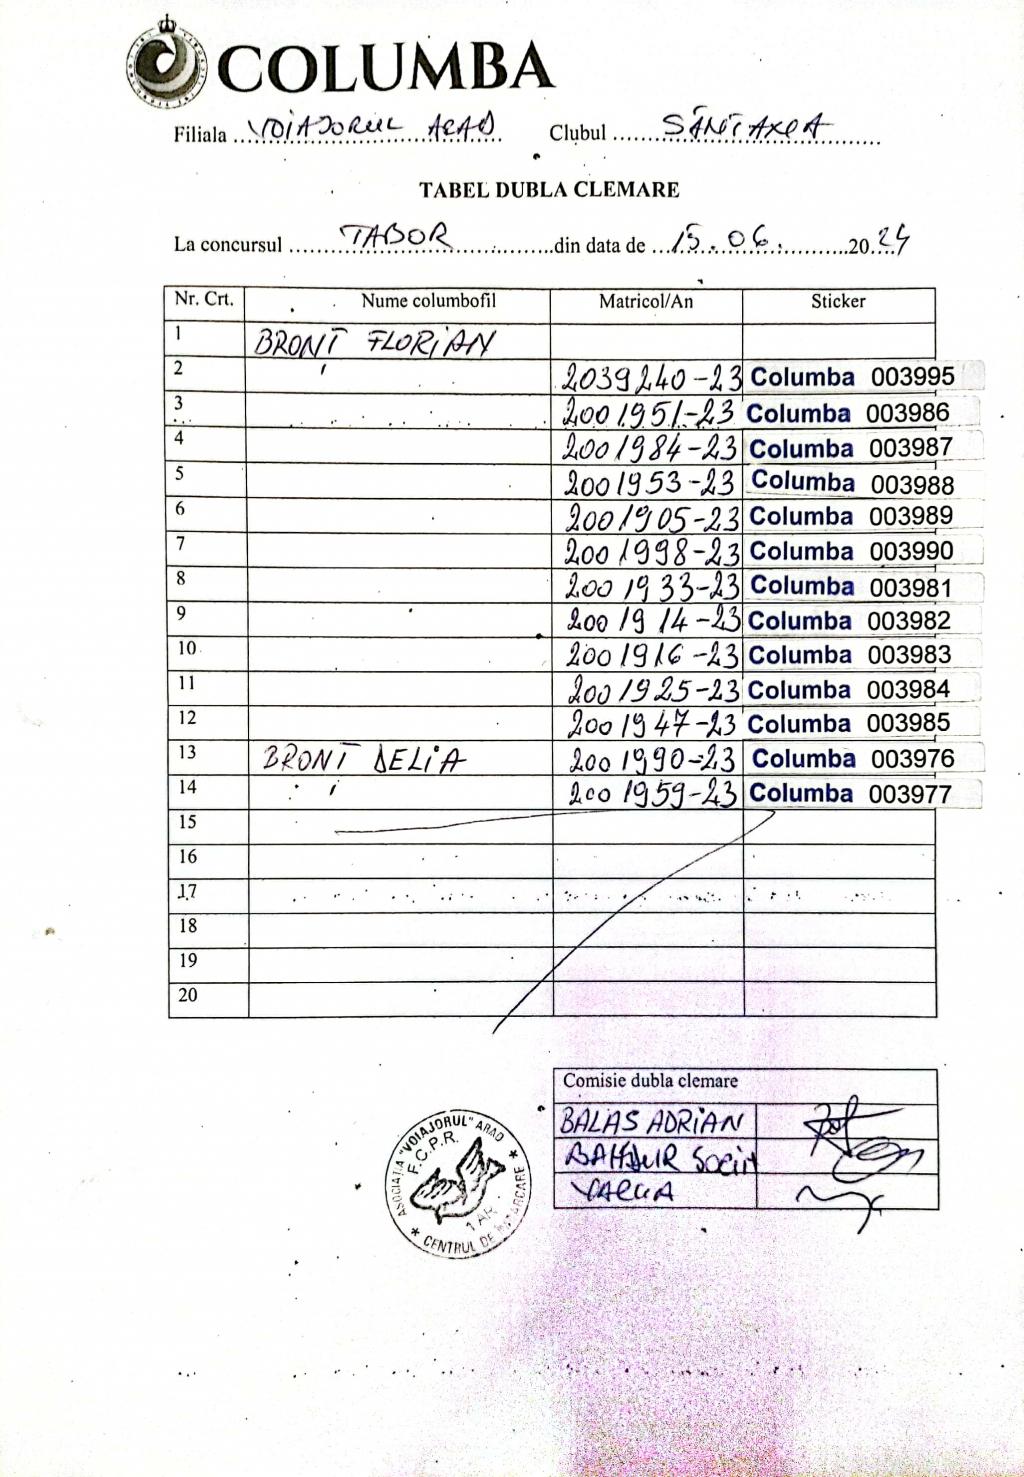 COLUMBA
Filiala VOIAJORUL ARAD Clubul SÂNTAXEA
TABEL DUBLA CLEMARE
La concursul TABOR din data de 15.06. 2024
Nr. Crt. Nume columbofil Matricol/An Sticker
1 BRONT FLORIAN
2 2039240-23 Columba 003995
3 2001951-23 Columba 003986
4 2001984-23 Columba 003987
5 2001953-23 Columba 003988
6 2001905-23 Columba 003989
7 2001998-23 Columba 003990
8 2001933-23 Columba 003981
9 2001914-23 Columba 003982
10 2001916-23 Columba 003983
11 2001925-23 Columba 003984
12 2001947-23 Columba 003985
13 BRONT DELIA 2001990-23 Columba 003976
14 2001959-23 Columba 003977
15
16
17
18
19
20
Comisie dubla clemare
BALAS ADRIAN
VARGA
ASOCIAȚIA "VOIAJORUL" ARAD
F.C.P.R.
1 AR
CENTRUL DE